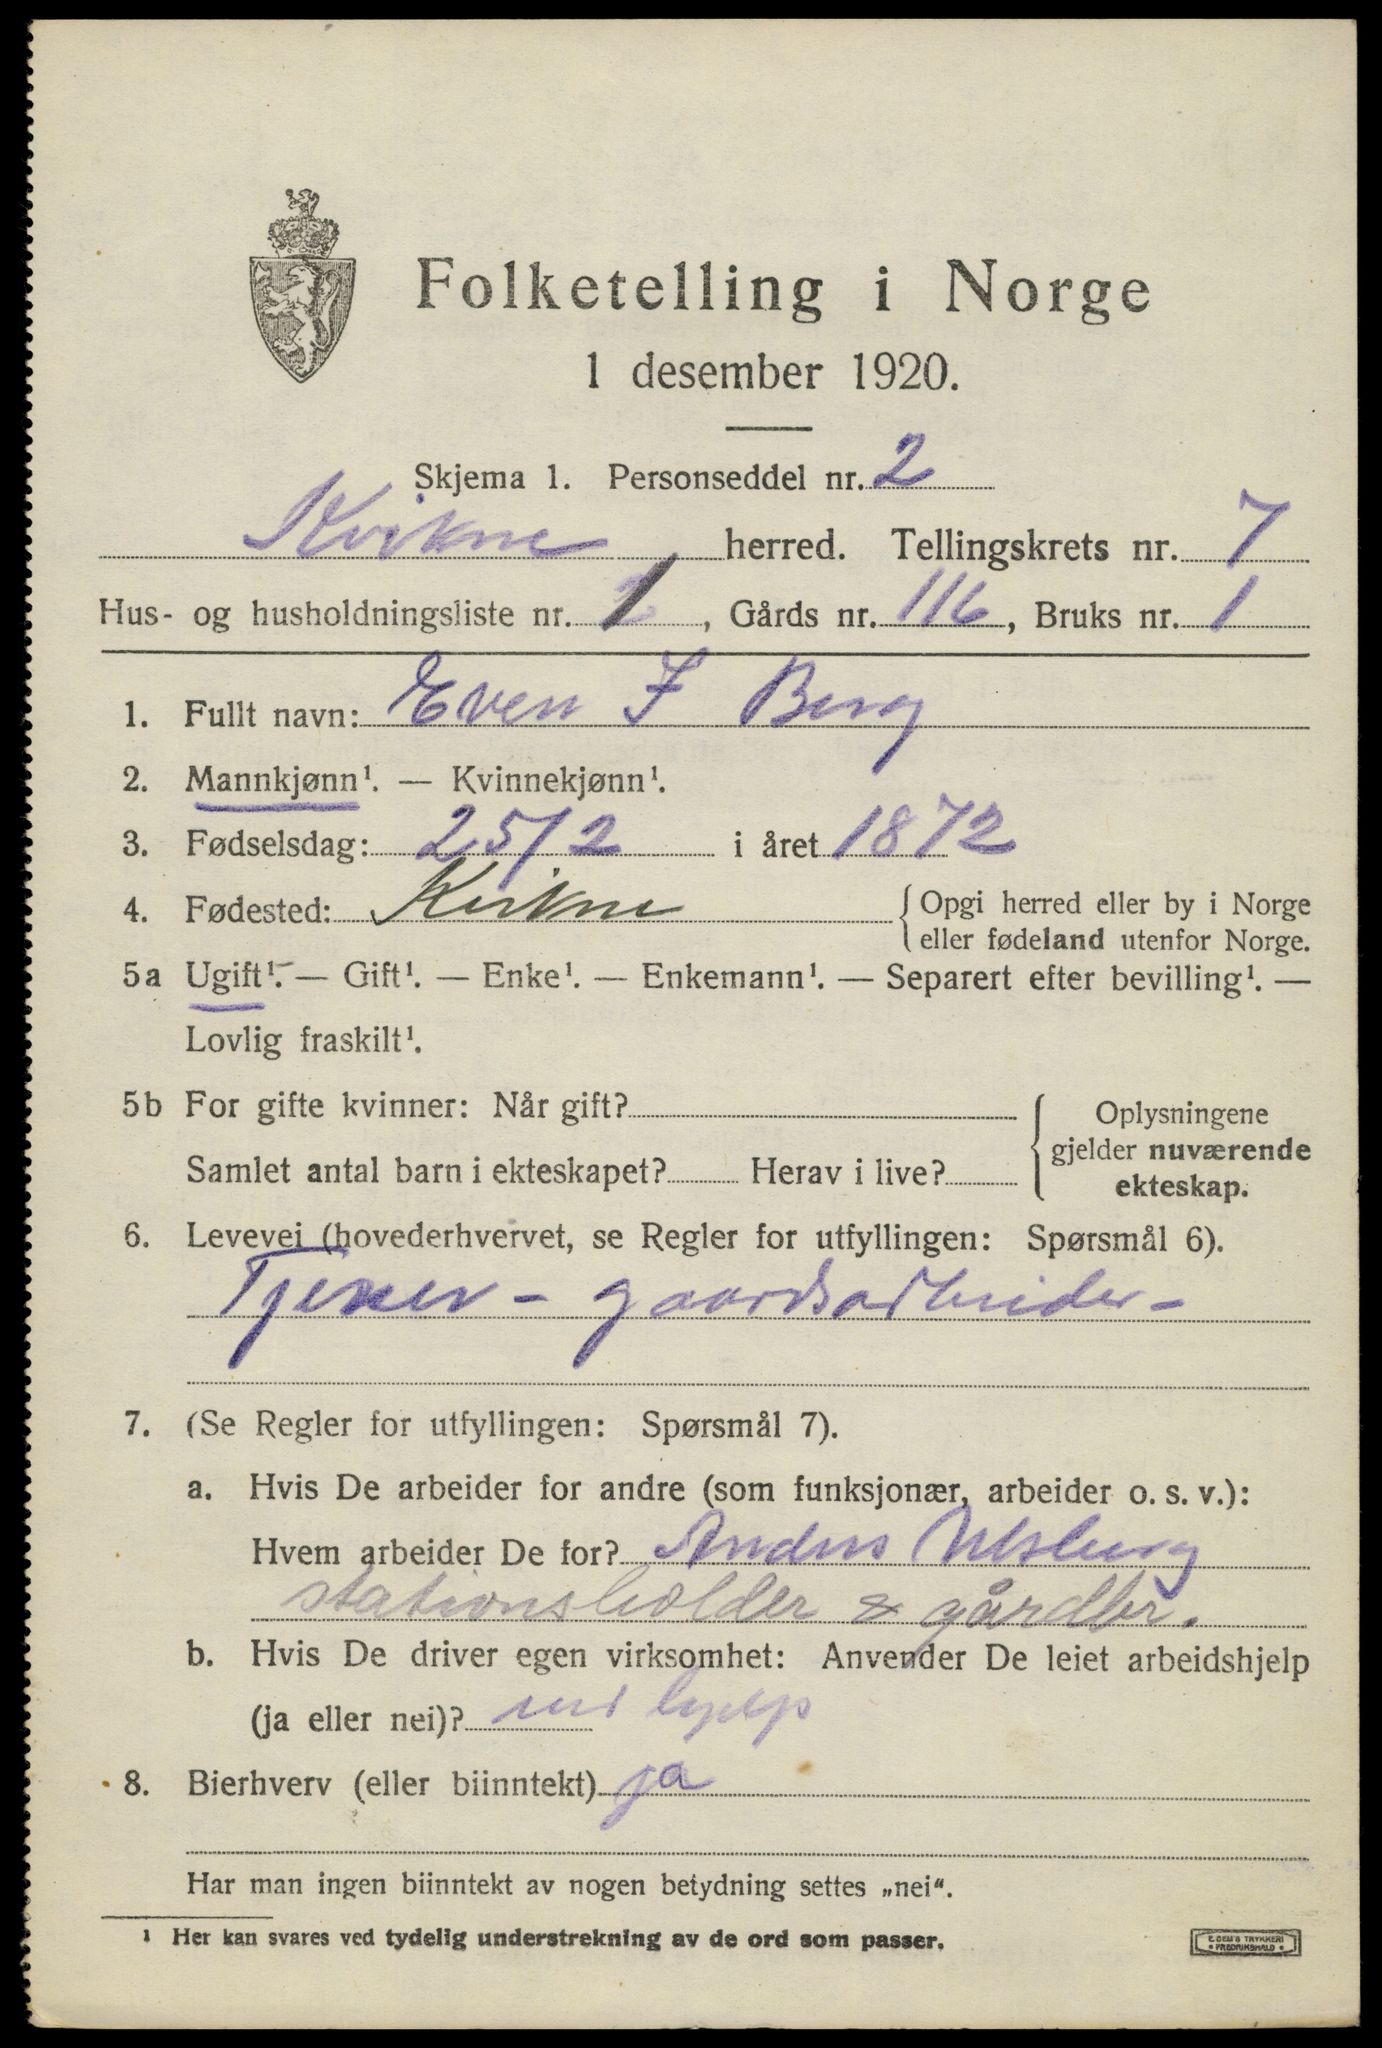 Folketelling i Norge
1 desember 1920.
Skjema 1. Personseddel nr. 2
Kvikne herred. Tellingskrets nr. 7
Hus- og husholdningsliste nr. 1, Gårds nr. 116, Bruks nr. 1
1. Fullt navn: Even F Berg
2. Mannkjønn¹. — Kvinnekjønn¹.
3. Fødselsdag: 25/2 i året 1872
4. Fødested: Kvikne {Opgi herred eller by i Norge
eller fødeland utenfor Norge.
5a Ugift¹. — Gift¹. — Enke¹. — Enkemann¹. — Separert efter bevilling¹. —
Lovlig fraskilt¹.
5b For gifte kvinner: Når gift? { Oplysningene
gjelder nuværende
Samlet antal barn i ekteskapet? Herav i live?
ekteskap.
6. Levevei (hovederhvervet, se Regler for utfyllingen: Spørsmål 6).
Tjener - gaardsarbeider -
7. (Se Regler for utfyllingen: Spørsmål 7).
a. Hvis De arbeider for andre (som funksjonær, arbeider o. s. v.):
Hvem arbeider De for? Anders Ulsberg
stationsholder & gårdbr.
b. Hvis De driver egen virksomhet: Anvender De leiet arbeidshjelp
(ja eller nei)? hjelp
8. Bierhverv (eller biinntekt) ja
Har man ingen biinntekt av nogen betydning settes „nei“.
¹ Her kan svares ved tydelig understrekning av de ord som passer.
E. SEM'S TRYKKERI
• FREDRIKSHALD •